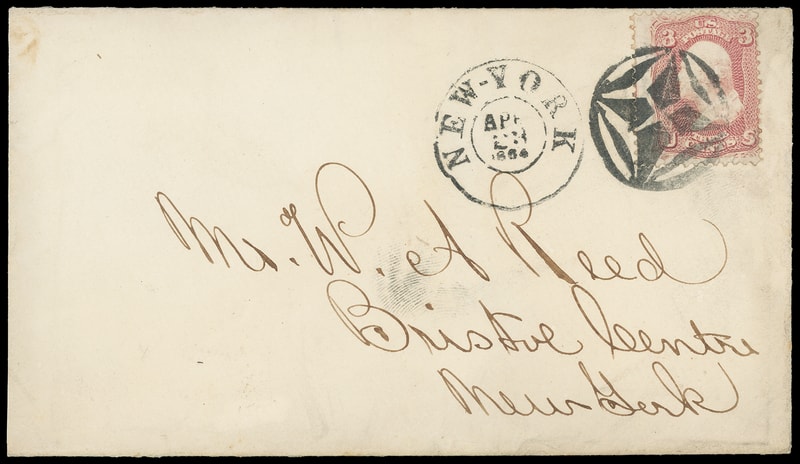 3 U.S. 3
POSTAGE
NEW-YORK
APR
1864
Mr. W. A. Reed
Bristol Centre
New-York